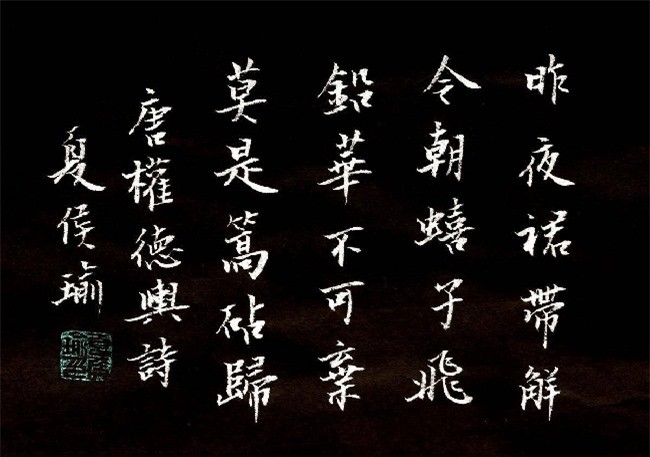 昨夜裙帶解
今朝蟢子飛
鉛華不可棄
莫是篙砧歸
唐權德輿詩
夏侯瑜